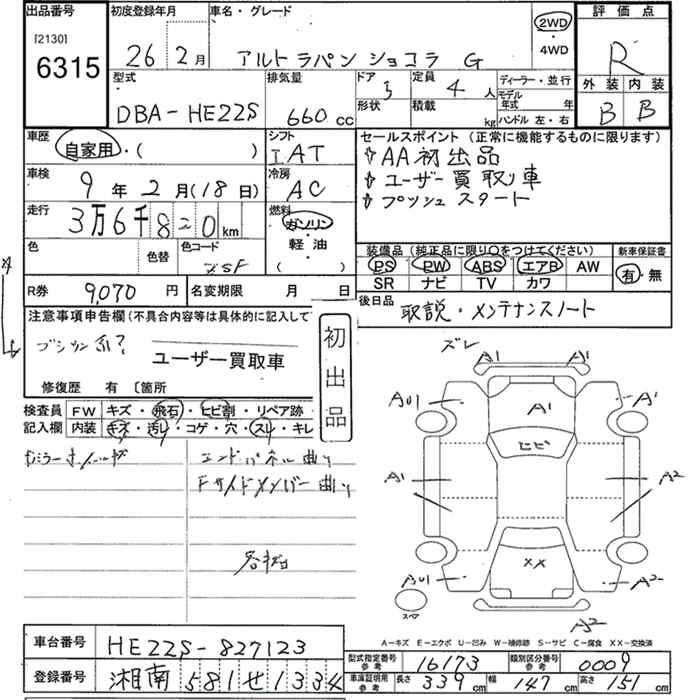 出品番号
[2130]
6315
初度登録年月
26年2月
車名・グレード
アルト ラパン ショコラ G
2WD
・
4WD
評価点
R
外装 内装
B B
型式
DBA-HE22S
排気量
660 cc
ドア 形状
定員 4人
積載 kg
ディーラー・並行
モデル年式 年
ハンドル 左・右
車歴
自家用・( )
シフト
IAT
セールスポイント(正常に機能するものに限ります)
AA初出品
ユーザー買取り車
プッシュスタート
車検
9年2月(18日)
冷房
AC
走行
3万6千820km
燃料
ガソリン
・
軽油
( )
色
色替
色コード
ZSF
装備品(純正品に限り○をつけてください)
PS PW ABS エアB AW
SR ナビ TV カワ
新車保証書
有・無
R券 9,070円
名変期限 月 日
後日品
取説・メンテナンスノート
注意事項申告欄(不具合内容等は具体的に記入して
ユーザー買取車
修復歴 有 〔箇所
初出品
検査員記入欄
FW キズ・飛石・ヒビ割・リペア跡・
内装 キズ・汚レ・コゲ・穴・スレ・キレ
エンドパネル曲り
Fサイドメンバー曲り
ズレ
A1 A1
AU1 A1 A1
ヒビ
A1 A2
XX
AU1 A2
スペア
A2
A-キズ E-エクボ U-凹み W-補修跡 S-サビ C-腐食 XX-交換済
車台番号 HE22S-827123
登録番号 湘南 581 せ 1334
型式指定番号参考 16173
類別区分番号参考 0009
車庫証明用参考 長さ 339cm 幅 147cm 高さ 151cm